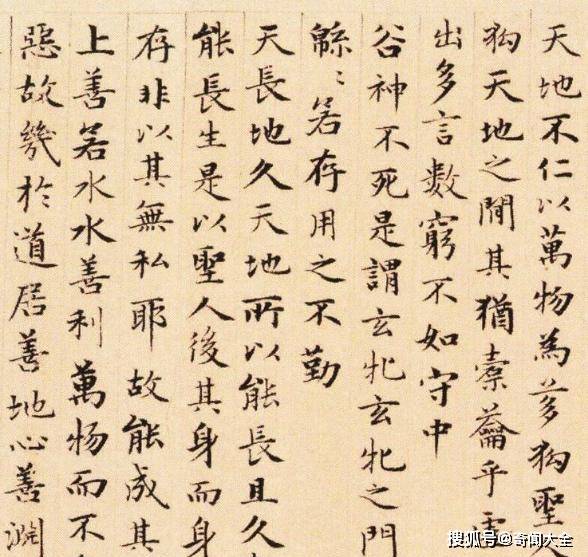 天地不仁以萬物為芻狗聖
狗天地之間其猶橐籥乎
出多言數窮不如守中
谷神不死是謂玄牝玄牝之門
緜〻若存用之不勤
天長地久天地所以能長且久
能長生是以聖人後其身而身
存非以其無私耶故能成其
上善若水水善利萬物而不
惡故幾於道居善地心善淵
搜狐号@奇闻大全